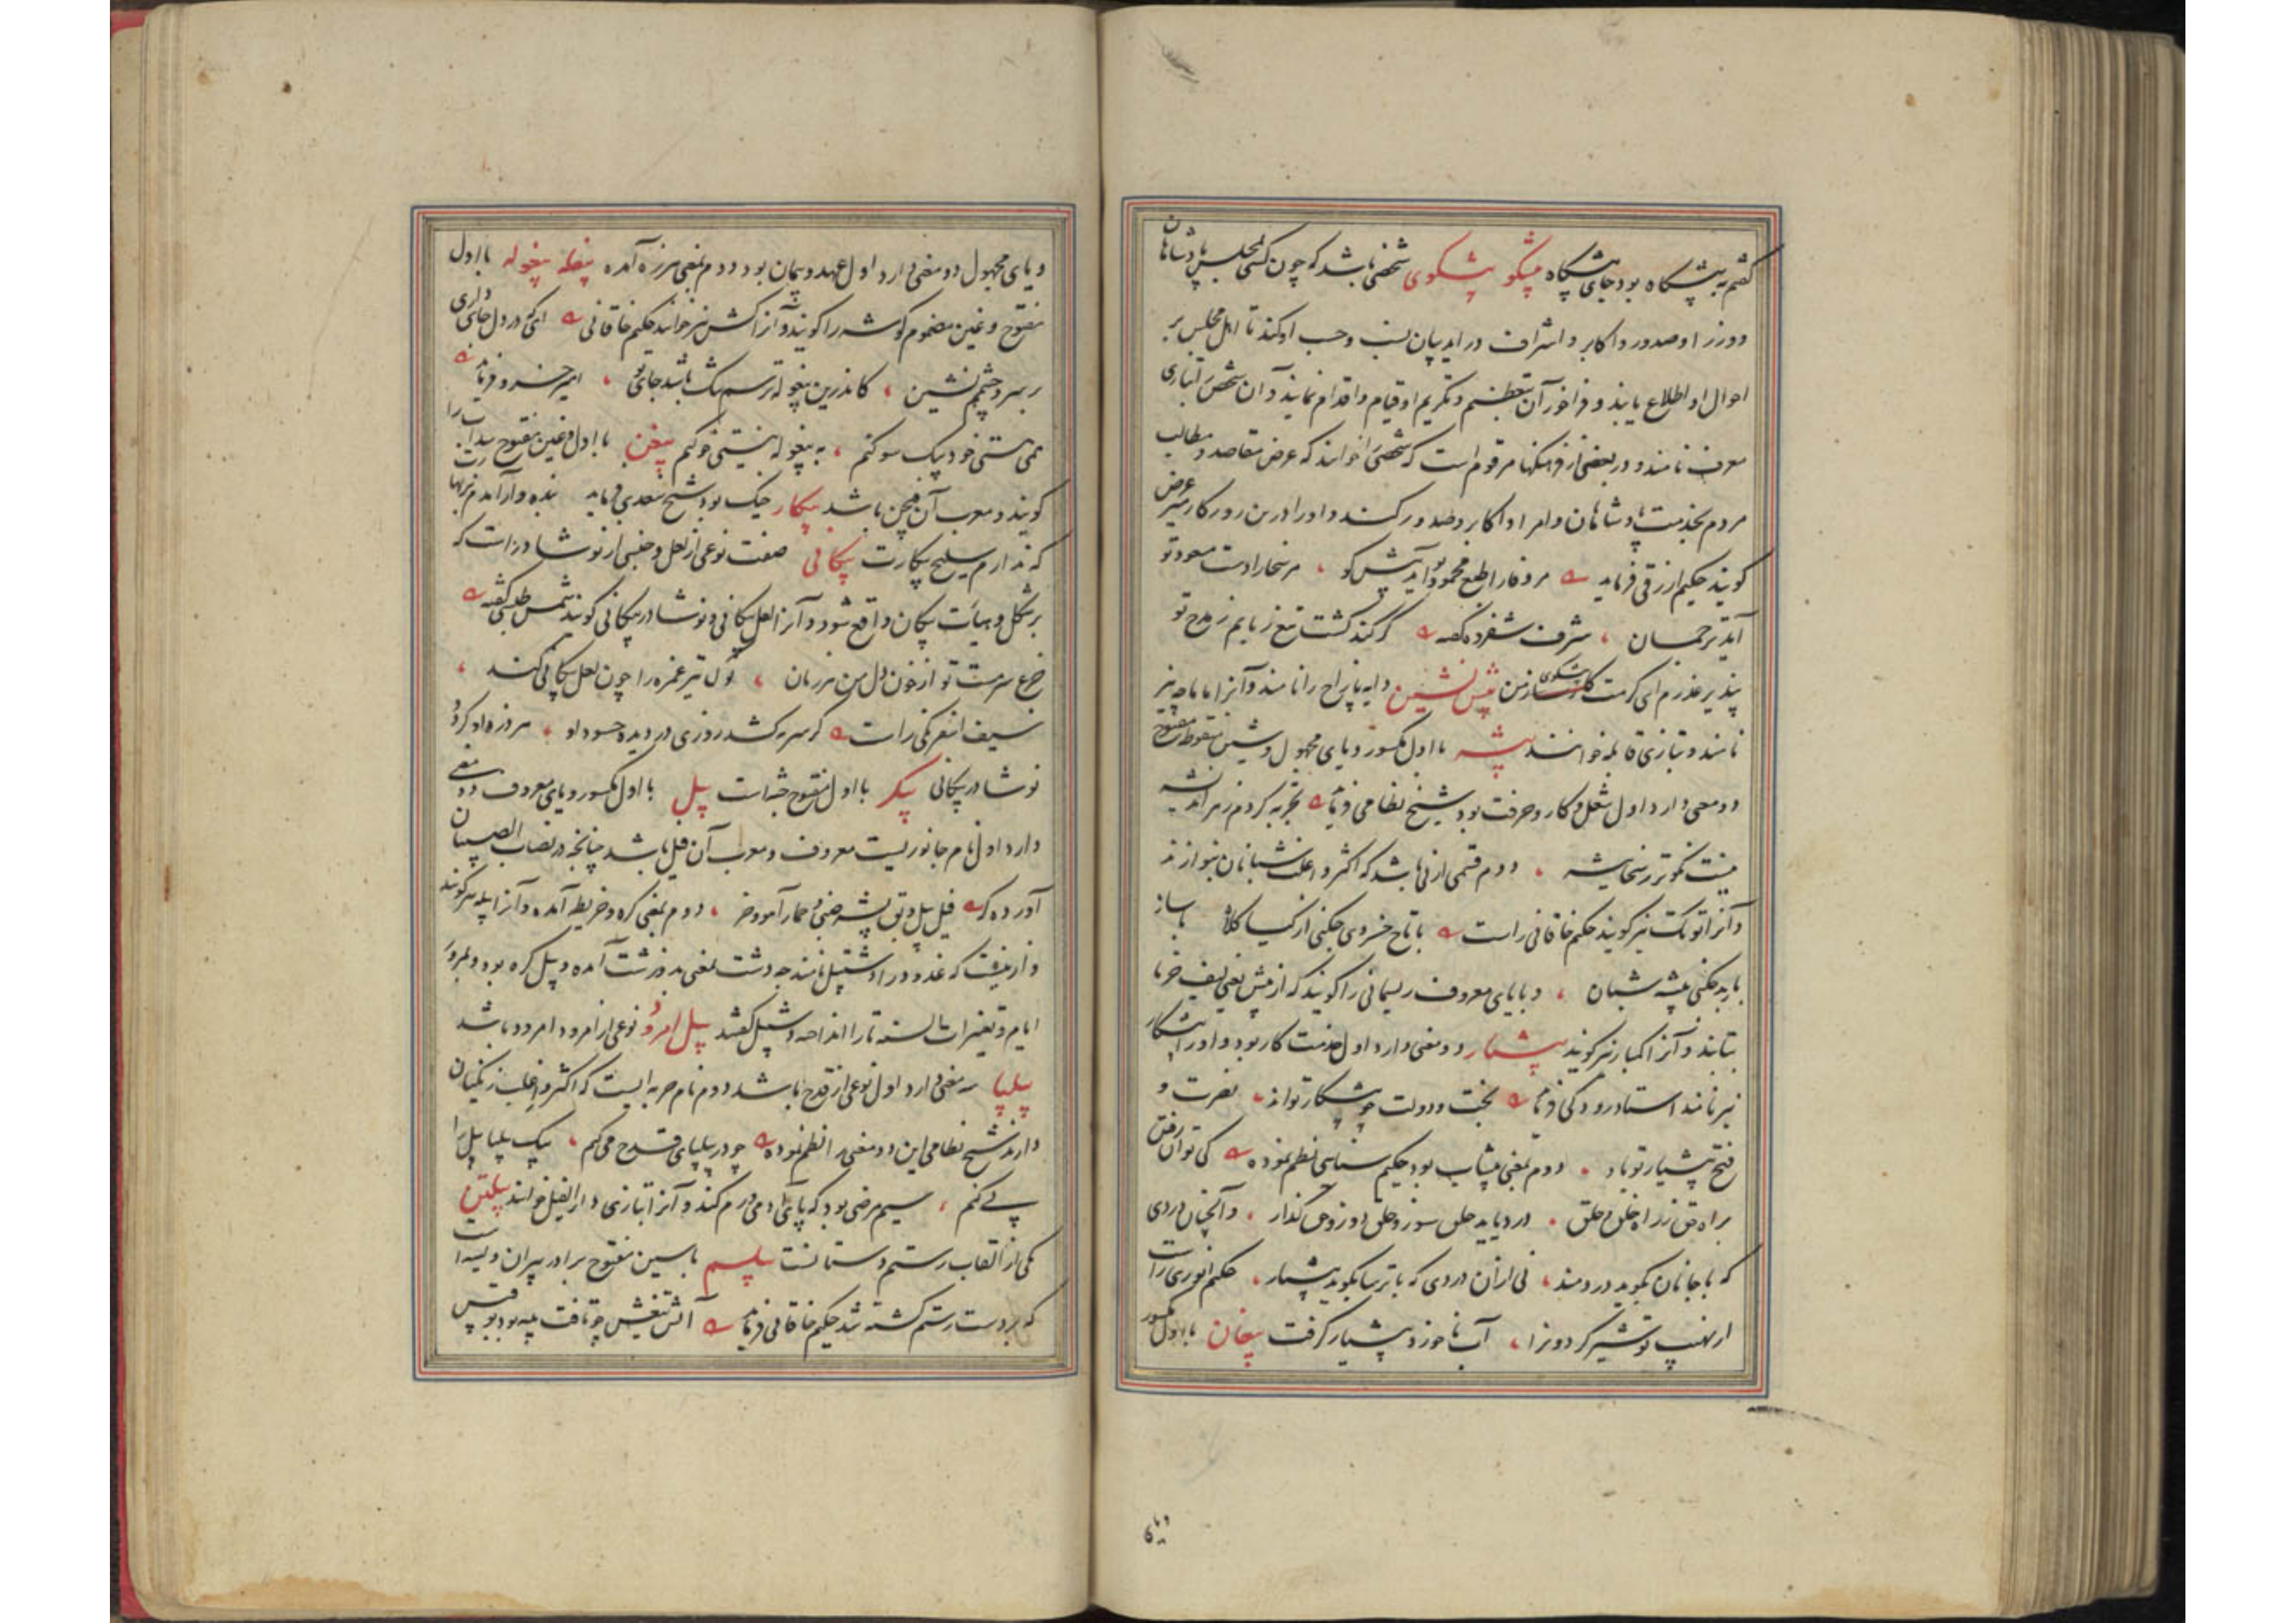 گفتم به پیشگاه بود جای پیشگاه پیشگو پیشگوی شخصی باشد که چون کسی بمجلس پادشاهان
و وزرا و صدور و اکابر و اشراف در آید بیان نسب و حسب او کند تا اهل مجلس بر
احوال او اطلاع یابند و فراخور آن بتعظیم و تکریم او قیام و اقدام نمایند و آن شخص را بتازی
معرف نامند و در بعضی از فرهنگها مرقوم است که شخصی را خوانند که عرض مقاصد و مطالب
مردم بخدمت پادشاهان و امرا و اکابر و صدور کند و او را درین روزکار میر عرض
کویند حکیم ازرقی فرماید مر وفا را طبع محمود تو آید پیش کو مر سخا را دست مسعود تو
آید ترجمان شرف شفروه کفته کر کند کشت تیغ زبانم ز مدح تو
بپذیر عذرم ای کرمت پیشکوی من پیش نشین دایه ناپراج را نامند و آنرا ماماچه نیز
نامند و بتازی قابله خوانند پیشه با اول مکسور و یای مجهول و شین منقوط مفتوح
دو معنی دارد اول شغل و کار و حرفت بود شیخ نظامی فرماید تجربه کردم ز هر اندیشه
نیست نکوتر ز سخا پیشه دوم قسمی از نی باشد که اکثر و اغلب شبانان بنوازند
و آنرا توتک نیز کویند حکیم خاقانی راست با تاج خسروی چکنی از کیا کلاه با ساز
باربد چکنی پیشه شبان و با یای معروف ریسمانی را کویند که از پیش یعنی لیف خرما
بتابند و آنرا کنبار نیز کویند پیشیار دو معنی دارد اول خدمت کار بود و او را پیشکار
نیز نامند استاد رودکی فرماید بخت و دولت چو پیشکار تواند نصرت و
فتح پیشیار تو باد دوم بمعنی پیشاب بود حکیم سنایی نظم نموده کی توان رفتن
براه حق ز راه خلق و حلق درد باید حلق سوز و خلق دوز و حق گذار و آنچنان دردی
که با جانان بگوید دردمند نی از آن دردی که با ترسا بگوید پیشیار حکیم انوری راست
از نهیب تو شیر گردونرا آب ناخورده پیشیار کرفت پیغان با اول مکسور
و یا
و یای مجهول دو معنی دارد اول عهد و پیمان بود دوم بمعنی هرزه آمده پیغله پیغوله با اول
مفتوح و غین مضموم کوشه را کویند و آنرا کنش نیز خوانند حکیم خاقانی ای که در دل جای داری
بر سر و چشمم نشین کاندرین پیغوله ترسم تنک باشد جای تو امیر خسرو فرماید
همی هستی خود بیک سو کنم به پیغوله نیستی خو کنم پیغن با اول و غین مفتوح سداب را
کویند و معرب آن فیجن باشد پیکار جنک بود شیخ سعدی فرماید بنده وار آمدم بزنهارت
که ندارم سلیح پیکارت پیکانی صفت نوعی از لعل و جنسی از نوشادر است که
بر شکل و هیأت پیکان واقع شود و آنرا لعل پیکانی و نوشادر پیکانی کویند شمس طبسی کفته
جزع سرمست تو از خون دل من هر زمان نوک تیر غمزه را چون لعل پیکانی کند
سیف اسفرنکی راست کر سرمه کشد روزی در دیده حسود او هر ذره او کردد
نوشادر پیکانی پیکر با اول مفتوح جثه است پیل با اول مکسور و یای معروف دو معنی
دارد اول نام جانوریست معروف و معرب آن فیل باشد چنانچه در نصاب الصبیان
آورده که فیل پیل و بق پشه ضب و حمار آمو و خر دوم بمعنی کره و خریطه آمده و آنرا پیله نیز کویند
و ازینست که غدود را دشپیل نامند چه دشت بمعنی بد و زشت آمده و پیل کره بود و بمرور
ایام و تغیرات السنه تا را انداخته دشپیل کفتند پیل امرود نوعی از امرود باشد
پیلپا سه معنی دارد اول نوعی از قدح باشد دوم نام حربه ایست که اکثر و اغلب زنکیان
دارند شیخ نظامی این دو معنی را نظم نموده چو در پیلپای قدح می کنم بیک پیلپا پیل را
پی کنم سیم مرضی بود که پای آدمی ورم کند و آنرا بتازی داء الفیل خوانند پیلتن
یکی از القاب رستم دستانست پیلسم با سین مفتوح برادر پیران ویسه است
که بر دست رستم کشته شد حکیم خاقانی فرماید آتش تیغش چو تافت پیه بود بوقبیس